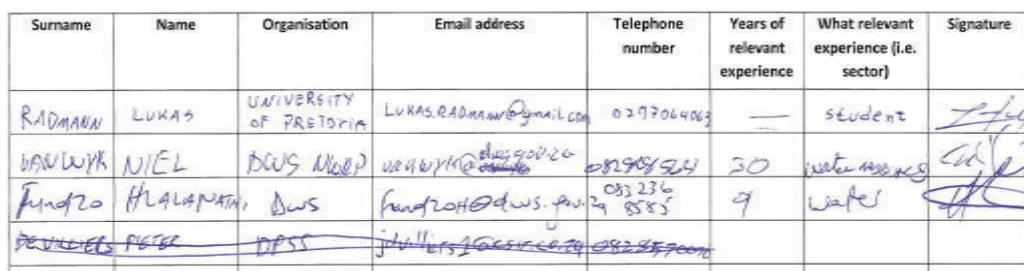 Surname Name Organisation Email address Telephone number Years of relevant experience What relevant experience (i.e. sector) Signature
RADMANN LUKAS UNIVERSITY OF PRETORIA LUKAS.RADMANN@gmail.com 0797064063 — student
VAN WYK NIEL DWS vanwyk@dws.gov.za 30 water
Fundzo DWS fundzoH@dws.gov.za 083 236 8585 9 water
DE VILLIERS PIETER DPSS